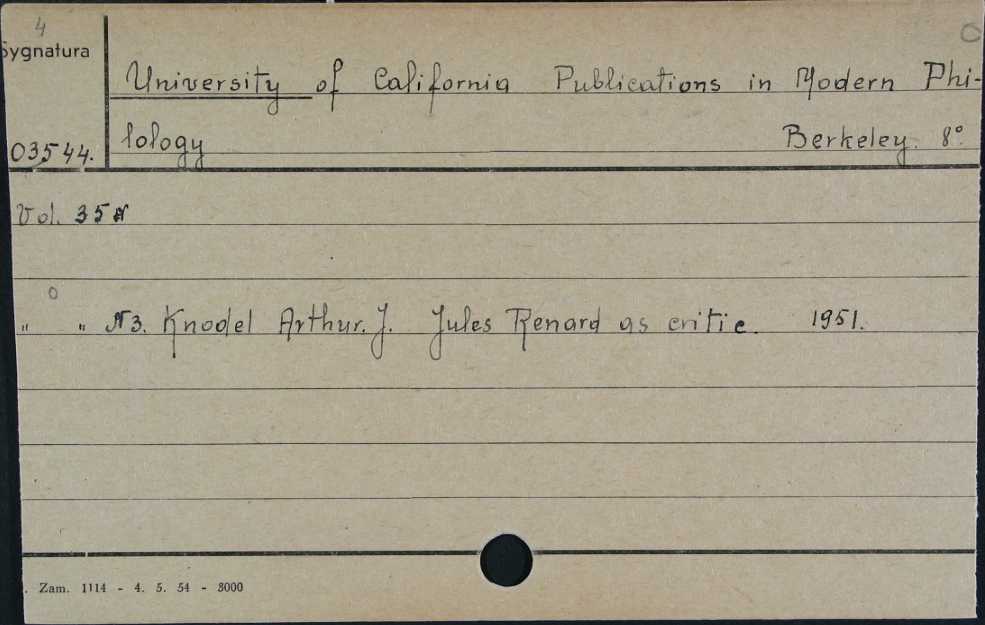 4
Sygnatura
University of California Publications in Modern Phi-
03544. lology Berkeley. 8°.
Vol. 35
" " N3. Knodel Arthur. J. Jules Renard as critic. 1951.
. Zam. 1114 - 4. 5. 54 - 3000